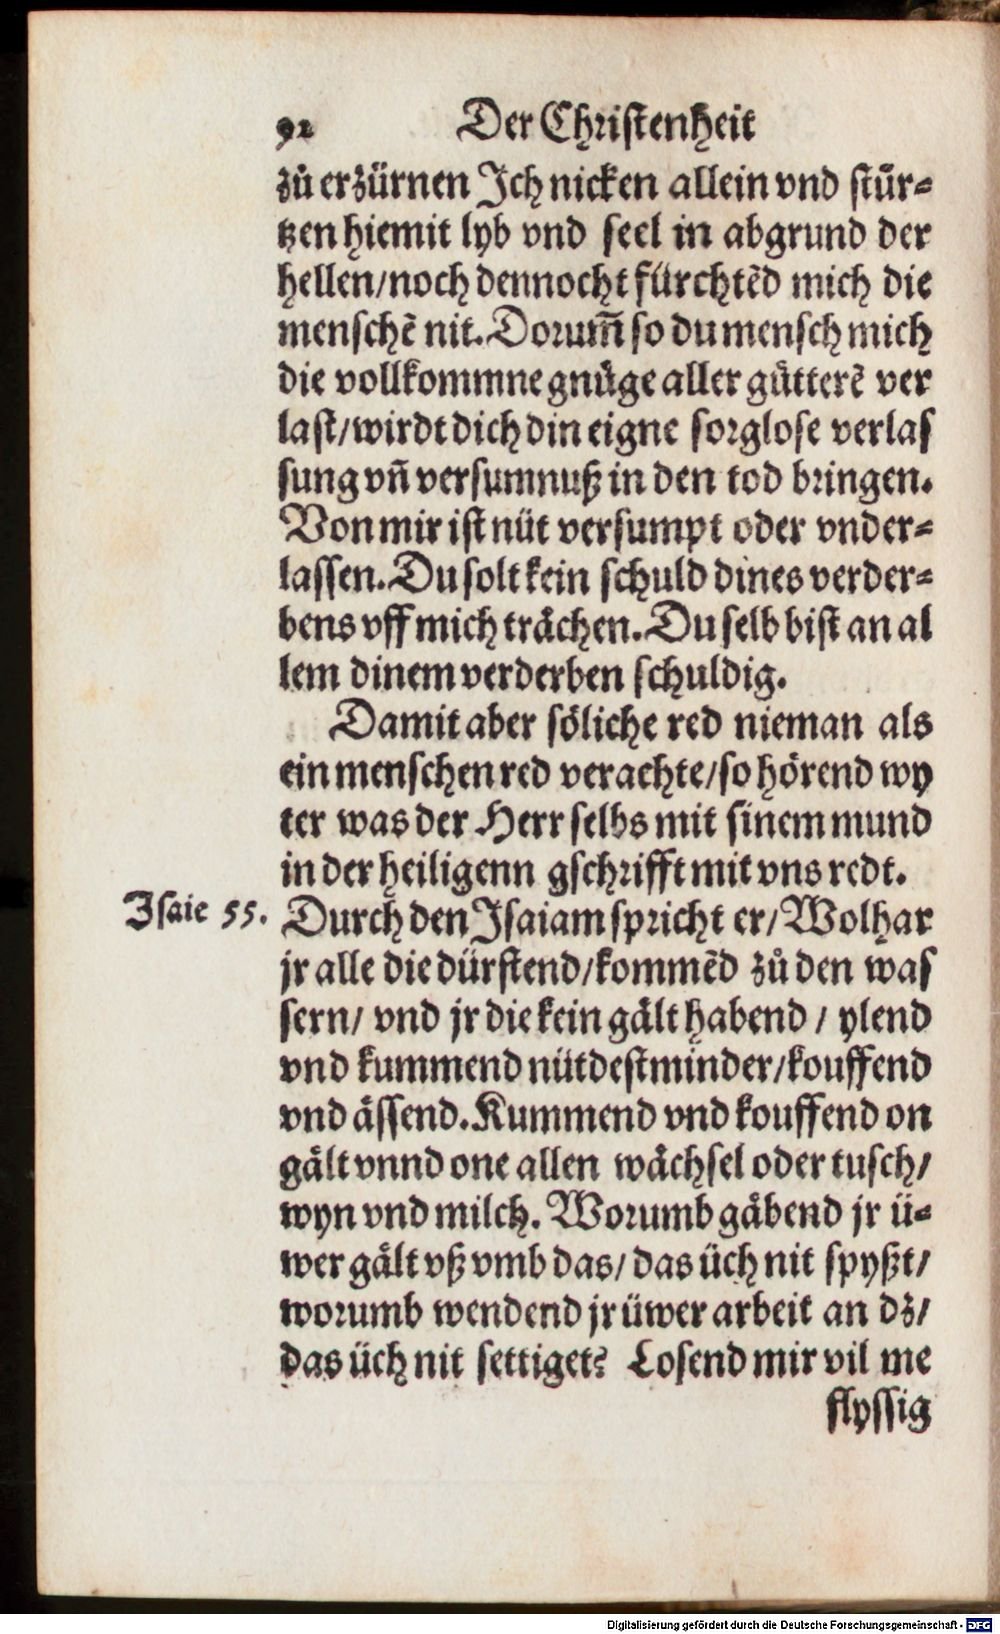 92 Der Christenheit
zů erzürnen Ich nicken allein vnd stür-
tzen hiemit lyb vnd seel in abgrund der
hellen/noch dennocht fürchtẽd mich die
menschẽ nit. Dorum̃ so du mensch mich
die vollkommne gnüge aller gütterẽ ver
last/wirdt dich din eigne sorglose verlas
sung vñ versumnuß in den tod bringen.
Von mir ist nüt versumpt oder vnder-
lassen. Du solt kein schuld dines verder-
bens vff mich trächen. Du selb bist an al
lem dinem verderben schuldig.
Damit aber söliche red nieman als
ein menschen red verachte/so hörend wy
ter was der Herr selbs mit sinem mund
in der heiligenn gschrifft mit vns redt.
Isaie 55. Durch den Isaiam spricht er/Wolhar
jr alle die dürstend/kommẽd zů den was
sern/ vnd jr die kein gält habend / ylend
vnd kummend nütdestminder/kouffend
vnd ässend. Kummend vnd kouffend on
gält vnnd one allen wächsel oder tusch/
wyn vnd milch. Worumb gäbend jr ü-
wer gält vß vmb das/das üch nit spyßt/
worumb wendend jr üwer arbeit an dz/
das üch nit settiget? Losend mir vil me
flyssig
Digitalisierung gefördert durch die Deutsche Forschungsgemeinschaft - DFG